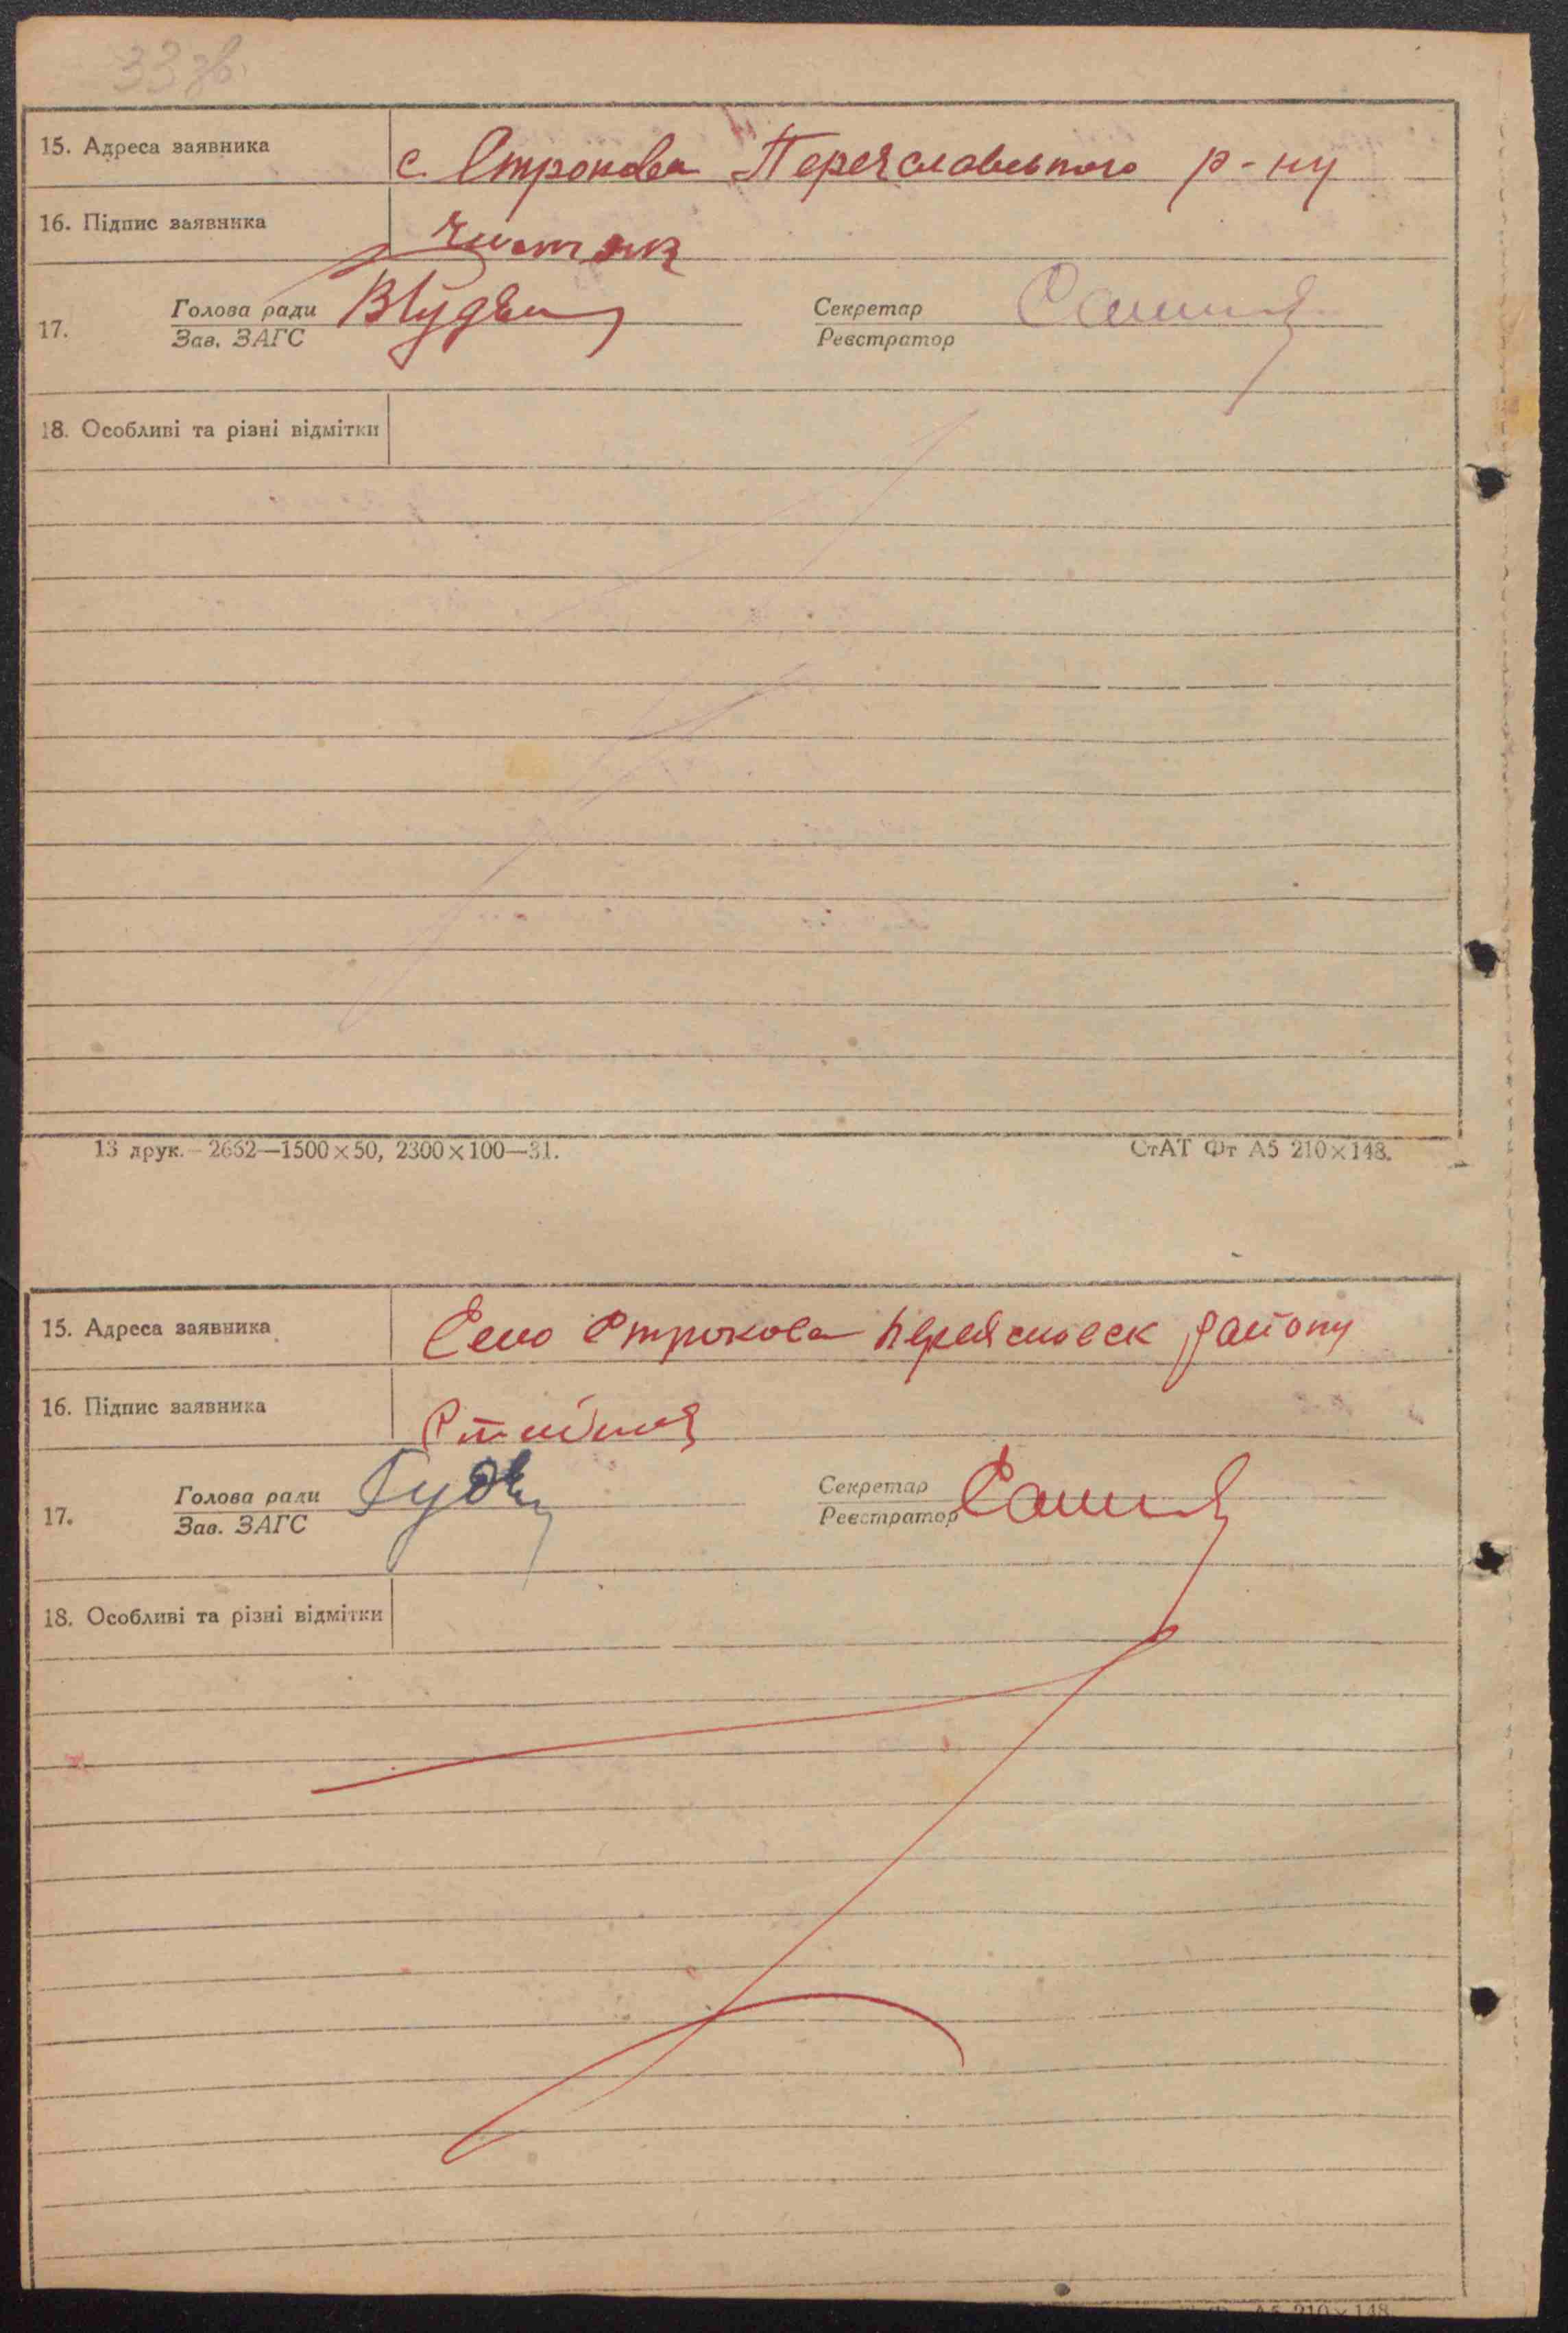 33 зв.
15. Адреса заявника с. Строкова Переяславського р-ну
16. Підпис заявника
17. Голова ради Секретар
Зав. ЗАГС Реєстратор
18. Особливі та різні відмітки
13 друк. – 2652—1500×50, 2300×100—31. СтАТ Фт А5 210×148.
15. Адреса заявника Село Строкова Переяславск району
16. Підпис заявника
17. Голова ради Секретар
Зав. ЗАГС Реєстратор
18. Особливі та різні відмітки
А5 210×148